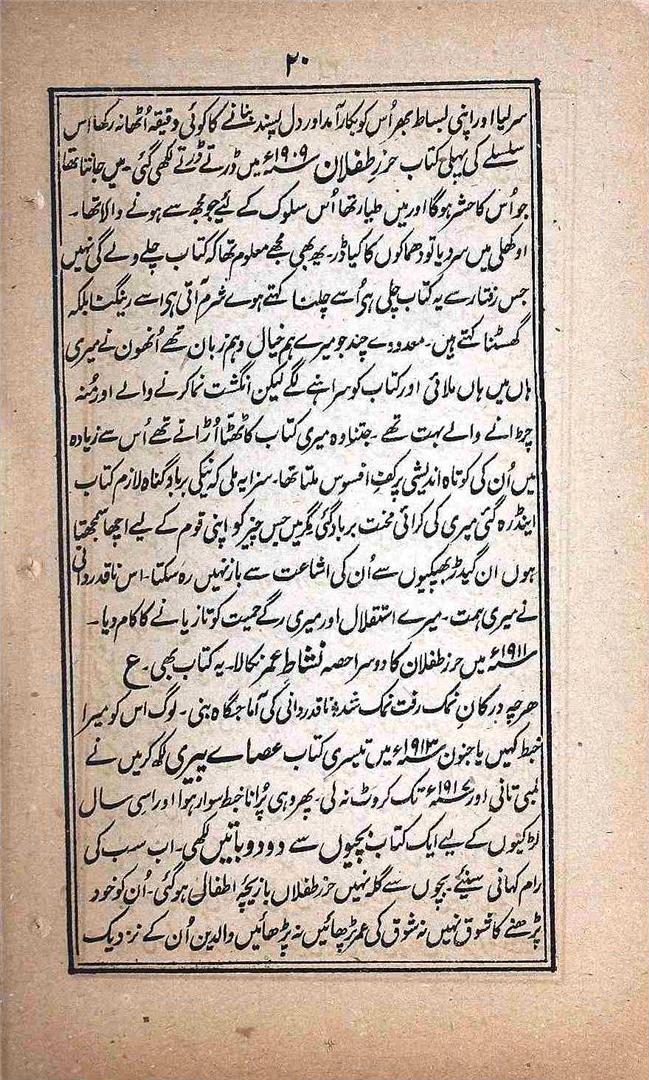 ۲۰
سر لیا اور اپنی بساط بھر اُس کو بکار آمد اور دل پسند بنانے کا کوئی دقیقہ اُٹھا نہ رکھا اس
سلسلے کی پہلی کتاب حرزِ طفلان ۱۹۰۹ء میں ڈرتے ڈرتے لکھی گئی۔ میں جانتا تھا
جو اُس کا حشر ہوگا اور میں طیار تھا اُس سلوک کے لئے جو مجھ سے ہونے والا تھا۔
اوکھلی میں سر دیا تو دھماکوں کا کیا ڈر۔ پھر بھی مجھے معلوم تھا کہ کتاب چلے ولے گی نہیں
جس رفتار سے یہ کتاب چلی ہی اُسے چلنا کہتے ہوے شرم آتی ہی اسے رینگنا بلکہ
گھسٹنا کہتے ہیں۔ معدودے چند جو میرے ہم خیال و ہم زبان تھے اُنھون نے میری
ہاں میں ہاں ملائی اور کتاب کو سراہنے لگے لیکن انگشت نما کرنے والے اور مُنہ
چڑانے والے بہت تھے۔ جتنا وہ میری کتاب کا ٹھٹّا اُڑاتے تھے اُس سے زیادہ
میں اُن کی کوتاہ اندیشی پر کفِ افسوس ملتا تھا۔ سزا یہ ملی کہ نیکی برباد گناہ لازم کتاب
اینڈ رہ گئی میری کی کرائی محنت برباد گئی مگر میں جس چیز کو اپنی قوم کے لیے اچھا سمجھتا
ہوں ان گیدڑ بھبکیوں سے اُن کی اشاعت سے باز نہیں رہ سکتا۔ اس ناقدردانی
نے میری ہمت۔ میرے استقلال اور میری رگِ حمیت کو تازیانے کا کام دیا۔
۱۹۱۱ء میں حرز طفلان کا دوسرا حصہ نشاطِ عمر نکالا۔ یہ کتاب بھی۔ ع
ہر چہ در کانِ نمک رفت نمک شد ناقدردانی کی آماجگاہ بنی۔ لوگ اس کو میرا
خبط کہیں یا جنون ۱۹۱۳ء میں تیسری کتاب عصاے پیری لکھ کر میں نے
لمبی تانی اور ۱۹۱۷ء تک کروٹ نہ لی۔ پھر وہی پُرانا خبط سوار ہوا اور اسی سال
لڑکیوں کے لیے ایک کتاب بچیوں سے دو دو باتیں لکھی۔ اب سب کی
رام کہانی سنیئے۔ بچوں سے گلہ نہیں حرز طفلاں بازیچۂ اطفالی ہوگئی۔ اُن کو خود
پڑھنے کا شوق نہیں نہ شوق کی عمر پڑھائیں نہ پڑھائیں والدین اُن کے نزدیک